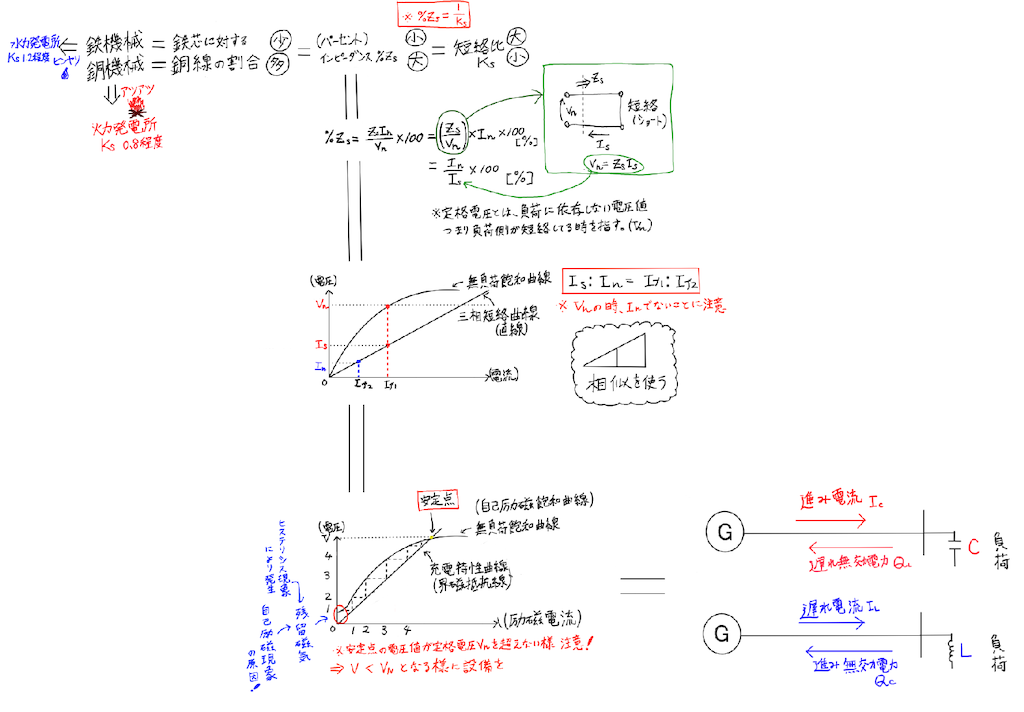 ※ %Zs = 1/Ks
水力発電所 ⇐ 鉄機械 = 鉄芯に対する 少 = (パーセント) 小 = 短絡比 大
Ks 1.2程度 ヒンヤリ 銅機械 = 銅線の割合 多 インピーダンス %Zs 大 Ks 小
アツアツ
火力発電所
Ks 0.8程度
%Zs = ZsIn/Vn ×100 = (Zs/Vn) × In ×100 [%]
= In/Is ×100 [%]
⇒ Zs
Vn
短絡
(ショート)
← Is
Vn = Zs Is
※定格電圧とは、負荷に依存しない電圧値
つまり負荷側が短絡してる時を指す。(Vn)
(電圧)
無負荷飽和曲線
Vn
三相短絡曲線
(直線)
Is
In
0 If2 If1 (電流)
Is : In = If1 : If2
※ Vnの時、Inでないことに注意
相似を使う
安定点
(自己励磁飽和曲線)
無負荷飽和曲線
(電圧)
V
4
3
2
1
0 1 2 3 4 (励磁電流)
充電特性曲線
ヒステリシス現象
により発生
残留磁気
自己励磁現象
の原因!
※安定点の電圧値が定格電圧Vnを超えない様 注意!
⇒ V < Vn となる様に設備を
進み電流 Ic
G
遅れ無効電力 QL
C
負荷
遅れ電流 IL
G
進み無効電力
Qc
L
負荷